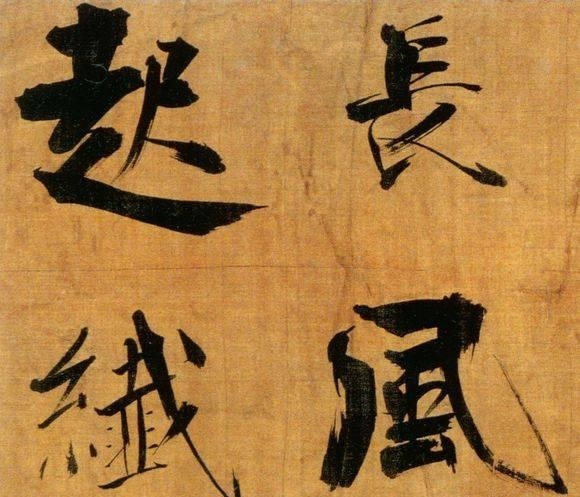 長風
起纖